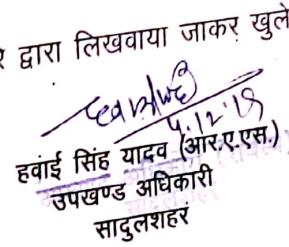 रे द्वारा लिखवाया जाकर खुले
4.12.19
हवाई सिंह यादव (आर.ए.एस.)
उपखण्ड अधिकारी
सादुलशहर